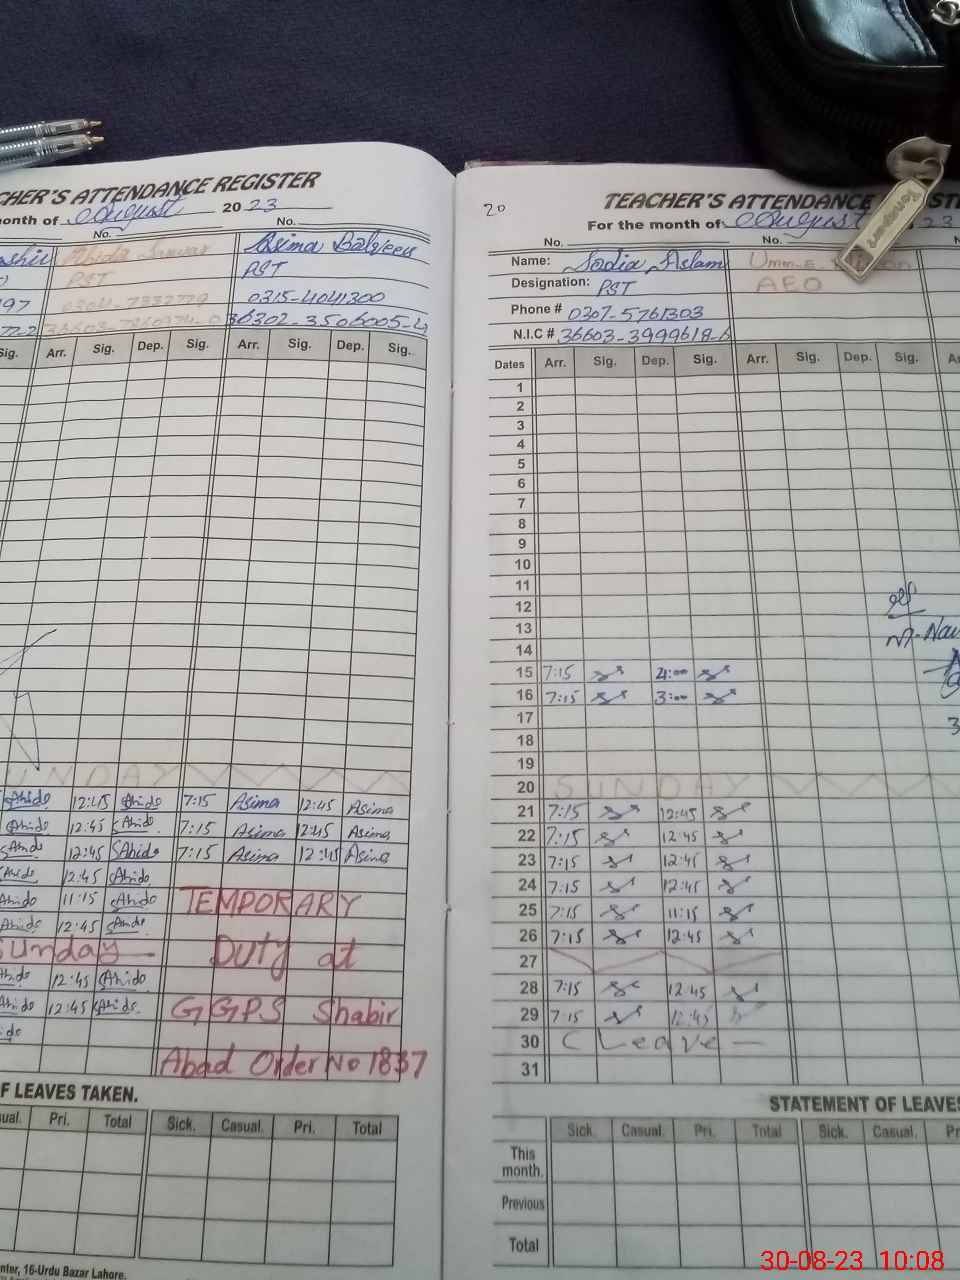 CHER'S ATTENDANCE REGISTER
onth of August 2023
No. No.
Asima Balqees
PST PST
97 0304-7332779 0315-4041300
36302-3506005-4
Sig. Arr. Sig. Dep. Sig. Arr. Sig. Dep. Sig.
SUNDAY
Abida 12:45 Abida 7:15 Asima 12:45 Asima
Abida 12:45 Abida 7:15 Asima 12:45 Asima
Abida 12:45 Abida 7:15 Asima 12:45 Asima
Abida 12:45 Abida
Abida 11:15 Abida TEMPORARY
Abida 12:45 Abida
Sunday Duty at
Abida 12:45 Abida
Abida 12:45 Abida GGPS Shabir
Abad Order No 1837
F LEAVES TAKEN.
ual. Pri. Total Sick. Casual. Pri. Total
nter, 16-Urdu Bazar Lahore.
20
TEACHER'S ATTENDANCE
For the month of August 23
No. No.
Name: Sadia Aslam Umm-e
Designation: PST AEO
Phone # 0307-5761303
N.I.C # 36603-3999618-6
Dates Arr. Sig. Dep. Sig. Arr. Sig. Dep. Sig.
1
2
3
4
5
6
7
8
9
10
11
12
13
14
15 7:15 4:00
16 7:15 3:00
17
18
19
20 SUNDAY
21 7:15 12:45
22 7:15 12:45
23 7:15 12:45
24 7:15 12:45
25 7:15 11:15
26 7:15 12:45
27
28 7:15 12:45
29 7:15 12:45
30 C Leave -
31
STATEMENT OF LEAVES
Sick. Casual. Pri. Total Sick. Casual. Pr
This month.
Previous
Total
30-08-23 10:08